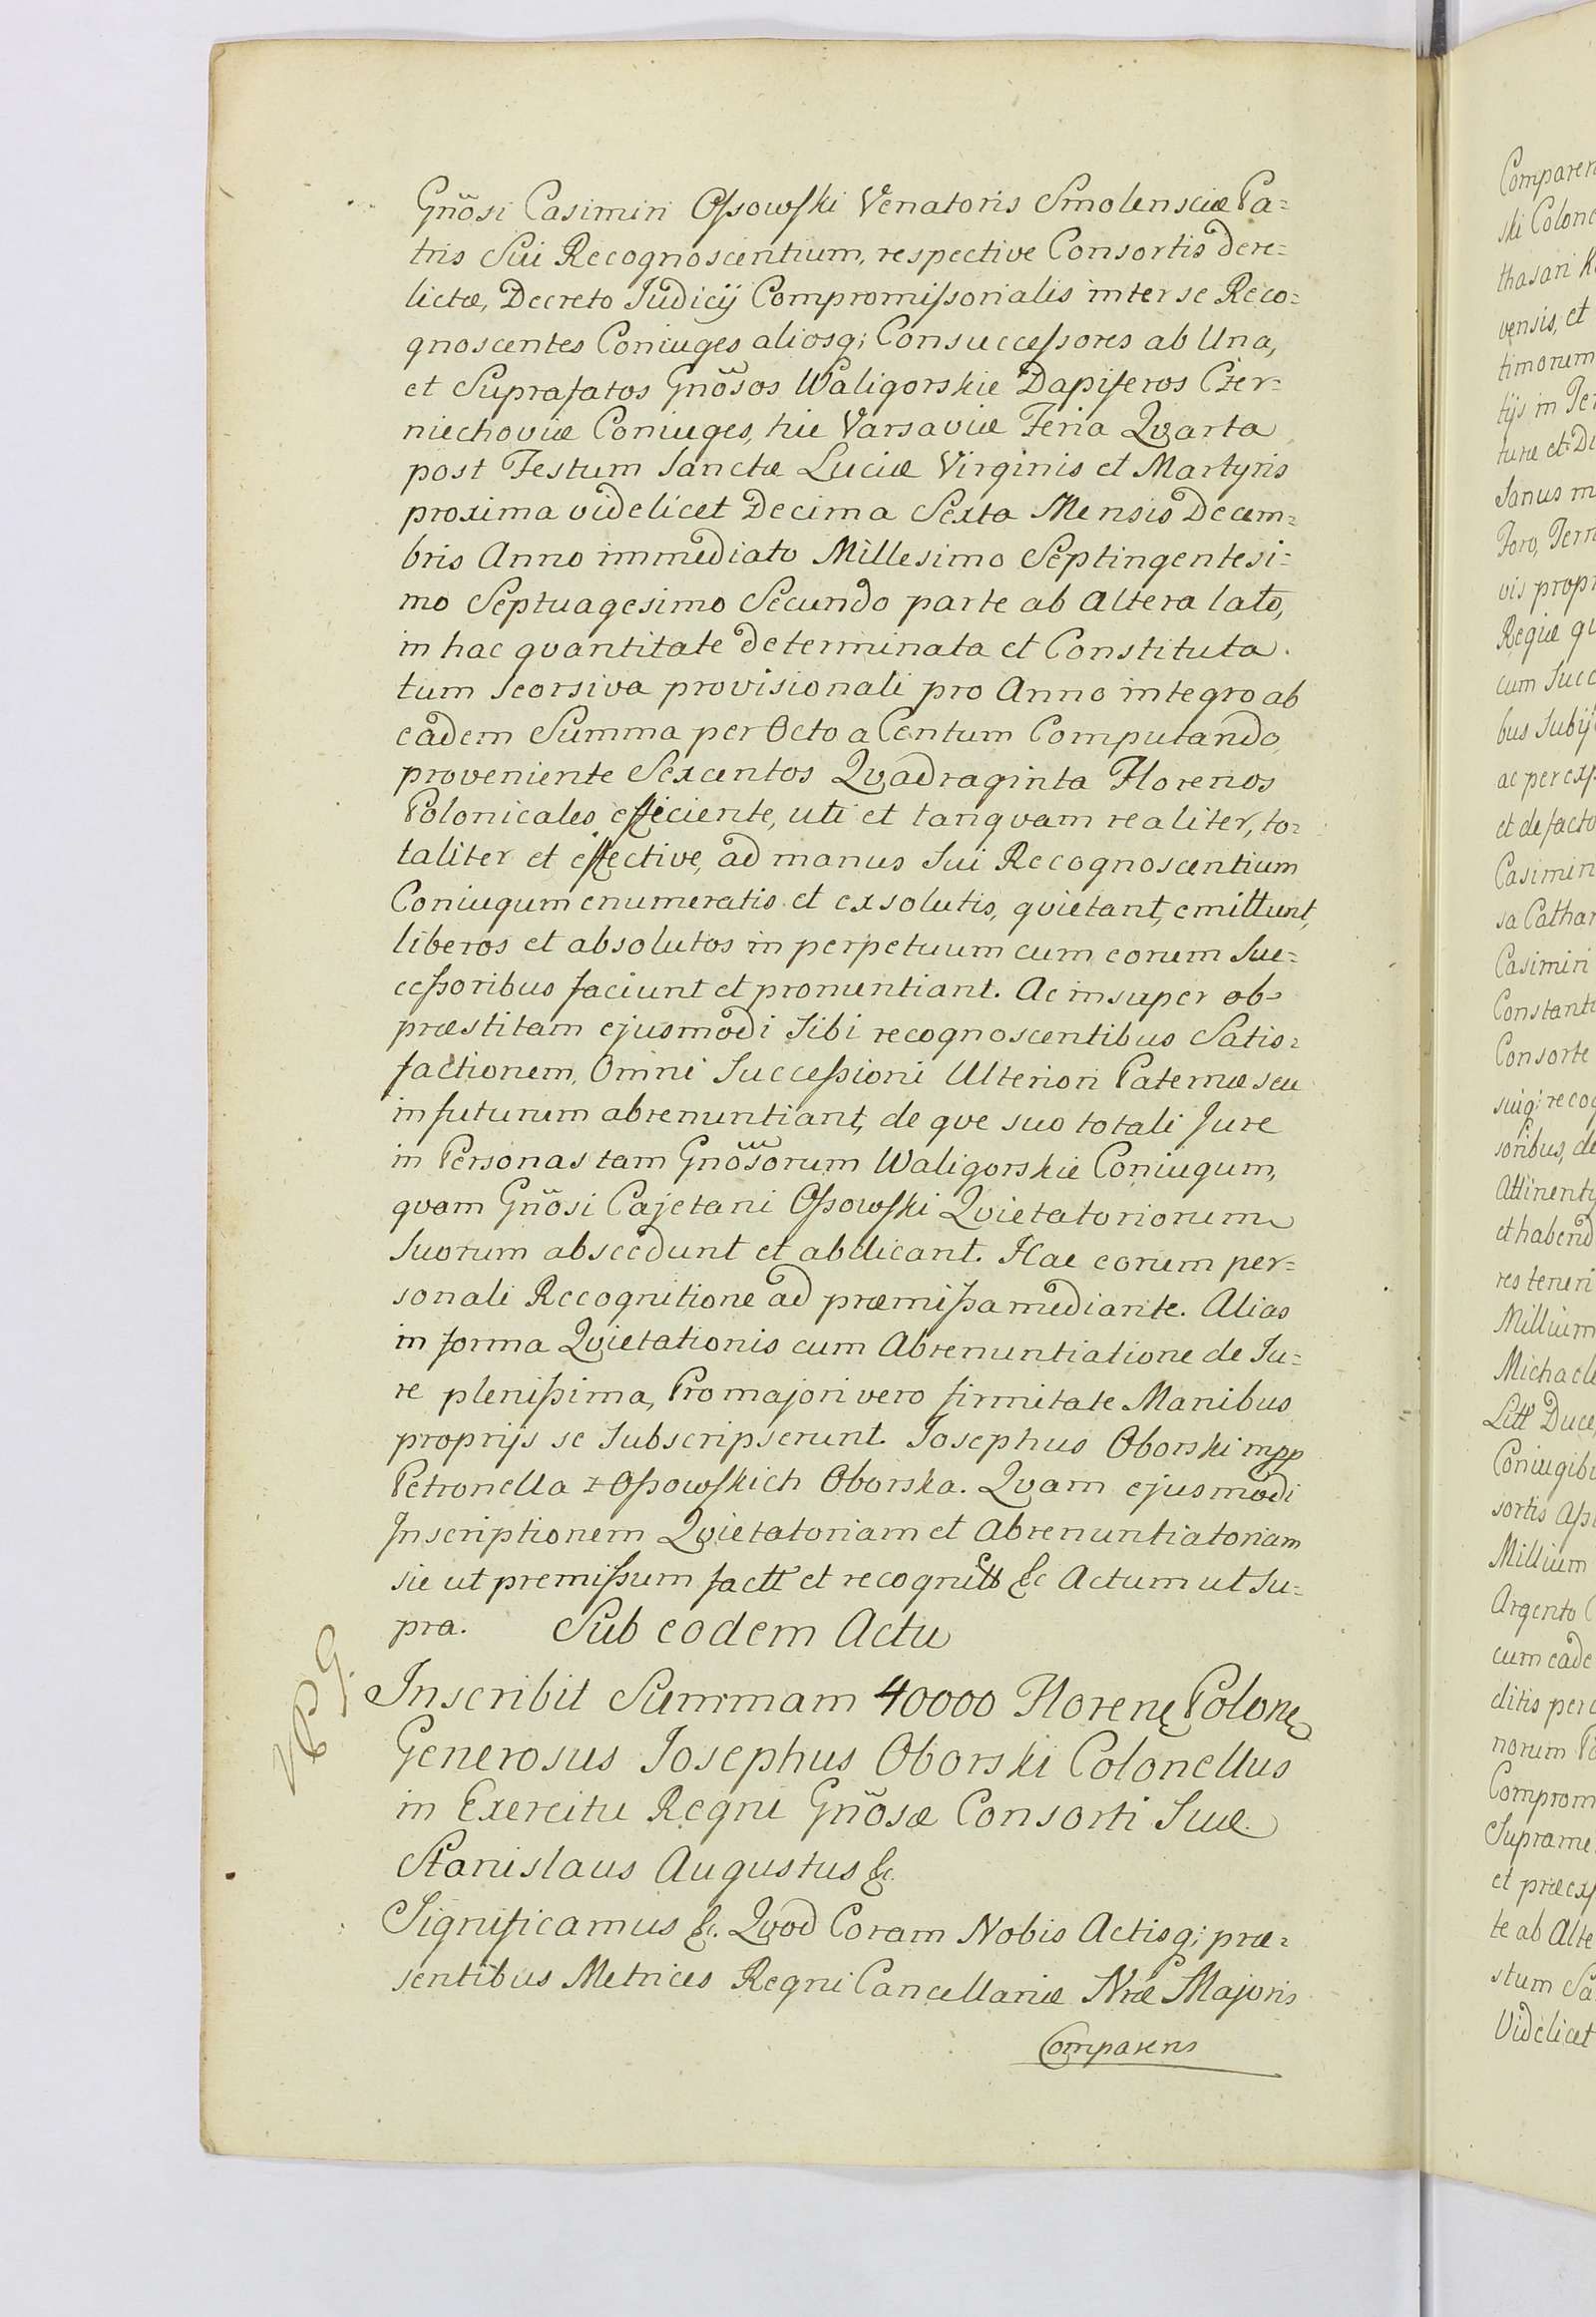 Gnõsi Casimiri Oſsowſki Venatoris Smolensciæ Pa=
tris Sui Recognoscentium, respective Consortis dere=
lictæ, Decreto Judicÿ Compromiſsorialis inter se Reco=
gnoscentes Coniuges aliosq; Consucceſsores ab Una,
et Suprafatos Gnõsos Waligorskie Dapiferos Czer=
niechoviæ Coniuges, hic Varsaviæ Feria Qvarta
post Festum Sanctæ Luciæ Virginis et Martyris
proxima videlicet Decima Sexta Mensis Decem=
bris Anno immediato Millesimo Septingentesi=
mo Septuagesimo Secundo parte ab altera lato,
in hac qvantitate determinata et Constituta.
tum Seorsiva provisionali pro Anno integro ab
eadem Summa per Octo a Centum Computando
proveniente Sexcentos Qvadraginta Florenos
Polonicales efficiente, uti et tanqvam realiter, to=
taliter et effective, ad manus Sui Recognoscentium
Coniugum enumeratis et exsolutis, qvietant, emittunt,
liberos et absolutos in perpetuum cum eorum Suc=
ceſsoribus faciunt et pronuntiant. Ac insuper ob=
præstitam ejusmodi Sibi recognoscentibus Satis=
factionem, Omni Succeſsioni Ulteriori Paternæ seu
in futurum abrenuntiant, de qve suo totali Jure
in Personas tam Gnõsorum Waligorskie Coniugum,
qvam Gnõsi Cajetani Oſsowſki Qvietatoriorum
Suorum abscedunt et abdicant. Hac eorum per=
sonali Recognitione ad præmiſsa mediante. Alias
in forma Qvietationis cum Abrenuntiatione de Ju=
re pleniſsima, Pro majori vero firmitate Manibus
proprijs se Subscripserunt. Josephus Oborski mpp
Petronella z Oſsowſkich Oborska. Qvam ejusmodi
Inscriptionem Qvietatoriam et Abrenuntiatoriam
sic ut premiſsum factt et recognitt &c Actum ut Su=
pra. Sub eodem Actu
NB 9.
Inscribit Summam 40000 Floren Polon
Generosus Josephus Oborski Colonellus
in Exercitu Regni Gnõsæ Consorti Suæ.
Stanislaus Augustus &c.
Significamus &c. Qvod Coram Nobis Actisq; præ=
sentibus Metrices Regni Cancellariæ Nræ Majoris
Comparens
ski Colon
thasari
vensis, et
tijs in
turæ et
Janus m
Foro, Terr
vis prop
Regiæ
cum Succ
bus Subij
ac per exp
et de facto
Casimiri
sa Cathar
Casimiri
Constanti
Consorte
suiq; recog
soribus, de
Attinenty
et habend
res teneri
Millium
Michaele
Litt Duce
Coniugib
sortis
Millium
Argento
cum eade
ditis per
norum
Comprom
Suprame
et præexp
te ab Alte
stum Sa
Videlicet